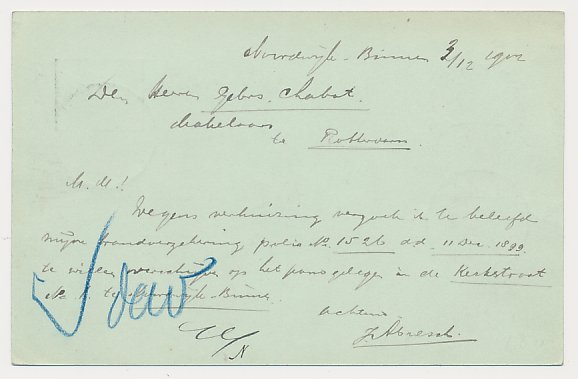 Noordwijk-Binnen 3/12 1902
Den Heeren Gebrs. Chabot.
Makelaars
te Rotterdam.
M. H.!
Wegens verhuizing verzoek ik U beleefd
mijne brandverzekering polis No. 1526 dd. 11 Dec. 1899
te willen overschrijven op het pand gelegen in de Kerkstraat
No. te Noordwijk-Binnen.
Achtend
J. Abresch.